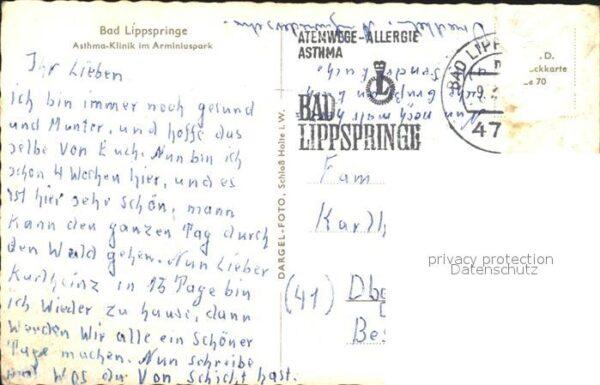 Bad Lippspringe
Asthma-Klinik im Arminiuspark
Ihr Lieben
ich bin immer noch gesund
und Munter, und hoffe das
selbe von Euch. Nun bin ich
schon 4 Wochen hier, und es
ist hier sehr schön, mann
kann den ganzen Tag durch
den Wald gehen. Nun Lieber
Karlheinz in 13 Tage bin
ich Wieder zu hause, dann
Werden Wir alle ein Schöner
Tage machen. Nun schreibe
mal Wos du Von Schicht hast.
DARGEL-FOTO, Schloß Holte i. W.
Nun noch mals
Grüße und
sendet Euch
ATEMWEGE-ALLERGIE
ASTHMA
L
BAD
LIPPSPRINGE
BAD LIPP
9.
47
D.
ckkarte
70
Fam
Karlh
(41) Dbg
Be
privacy protection
Datenschutz